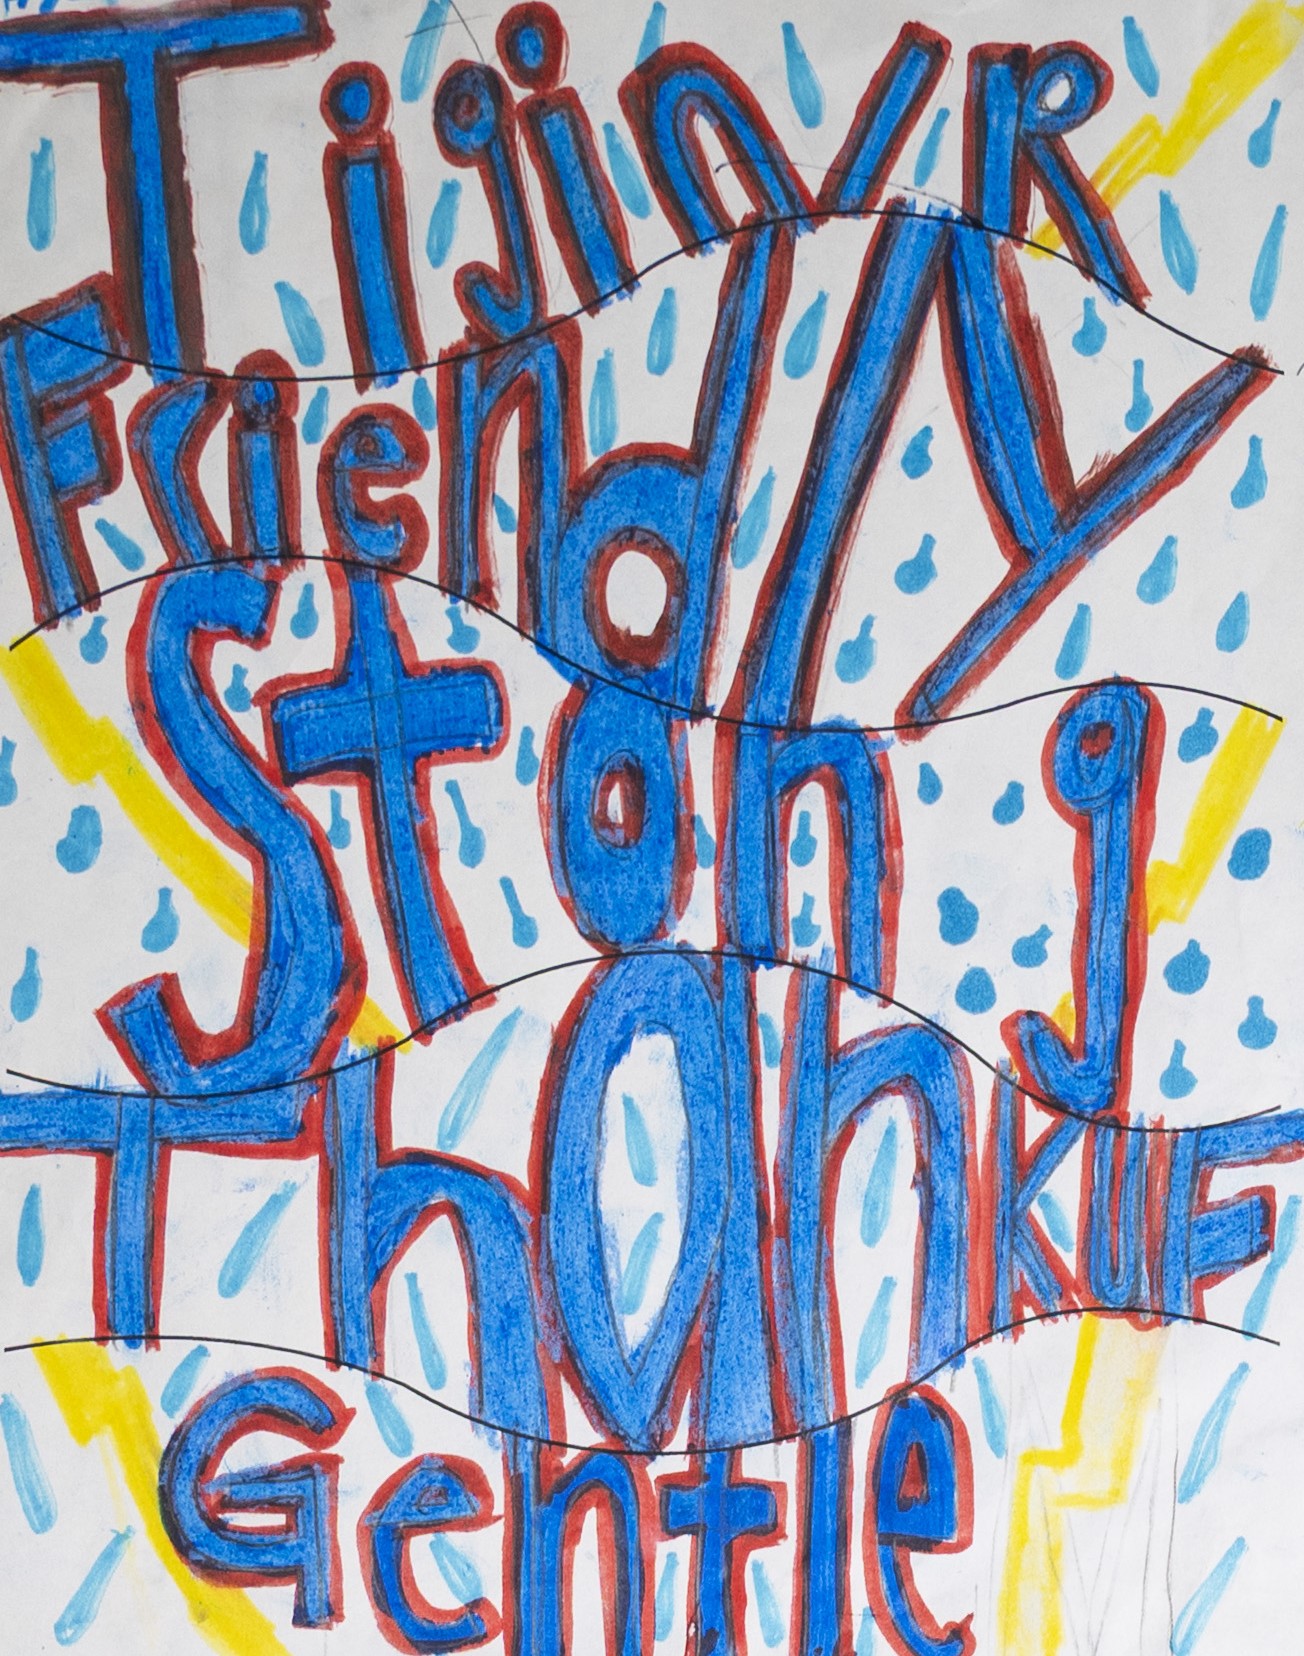 Tigin/R
Friendly
Stong
ThahKUF
Gentle